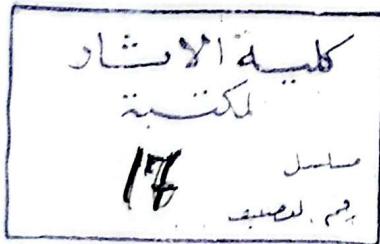 كلية الاثار
مكتبة
مسلسل 17
رقم التصنيف